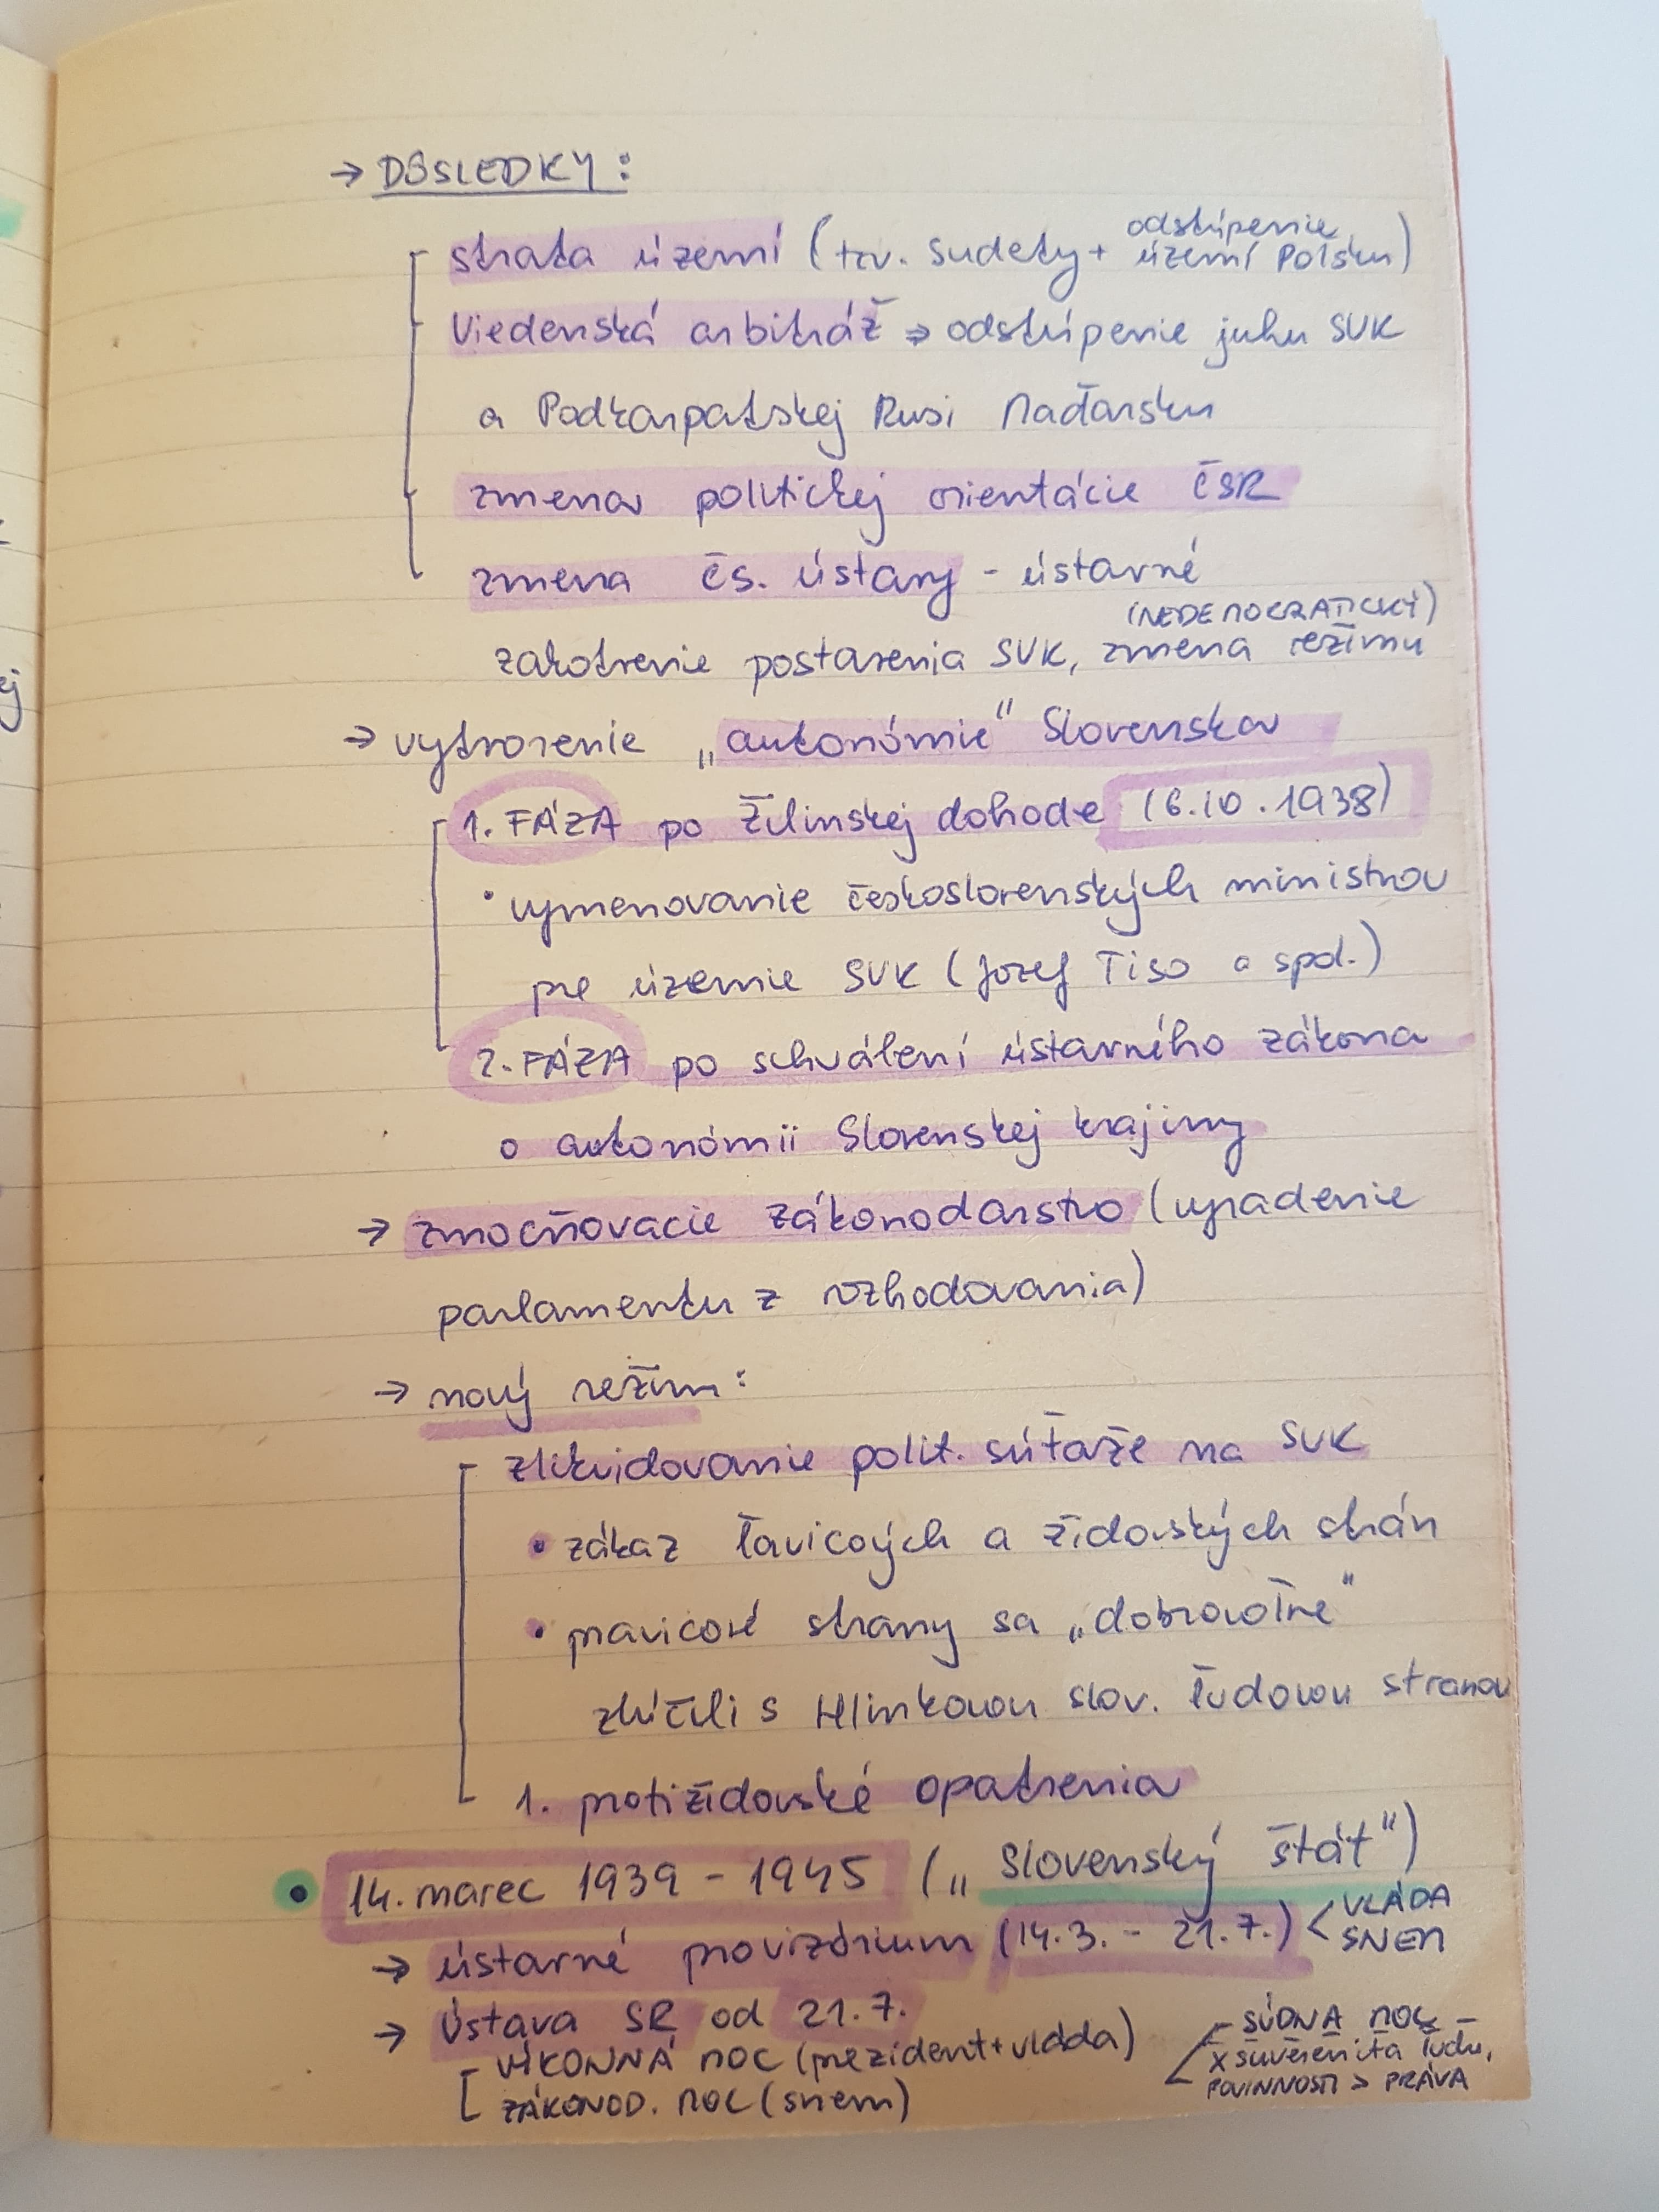 → DÔSLEDKY:
strata území (tzv. Sudety + odstúpenie území Poľsku)
Viedenská arbitráž ⇒ odstúpenie juhu SVK
a Podkarpatskej Rusi Maďarsku
zmena politickej orientácie ČSR
zmena čs. ústavy - ústavné
(NEDEMOKRATICKÝ)
zakotvenie postavenia SVK, zmena režimu
→ vytvorenie „autonómie" Slovenska
1. FÁZA po Žilinskej dohode (6.10.1938)
• vymenovanie československých ministrov
pre územie SVK (Jozef Tiso a spol.)
2. FÁZA po schválení ústavného zákona
o autonómii Slovenskej krajiny
→ zmocňovacie zákonodarstvo (vyradenie
parlamentu z rozhodovania)
→ nový režim:
zlikvidovanie polit. súťaže na SVK
• zákaz ľavicových a židovských strán
• pravicové strany sa „dobrovoľne"
zlúčili s Hlinkovou slov. ľudovou stranou
1. protižidovské opatrenia
• 14. marec 1939 - 1945 („Slovenský štát")
→ ústavné provizórium (14.3. - 21.7.) < VLÁDA
SNEM
→ Ústava SR od 21.7.
VÝKONNÁ MOC (prezident + vláda)
ZÁKONOD. MOC (snem)
- SÚDNA MOC -
x suverenita ľudu,
POVINNOSTI > PRÁVA